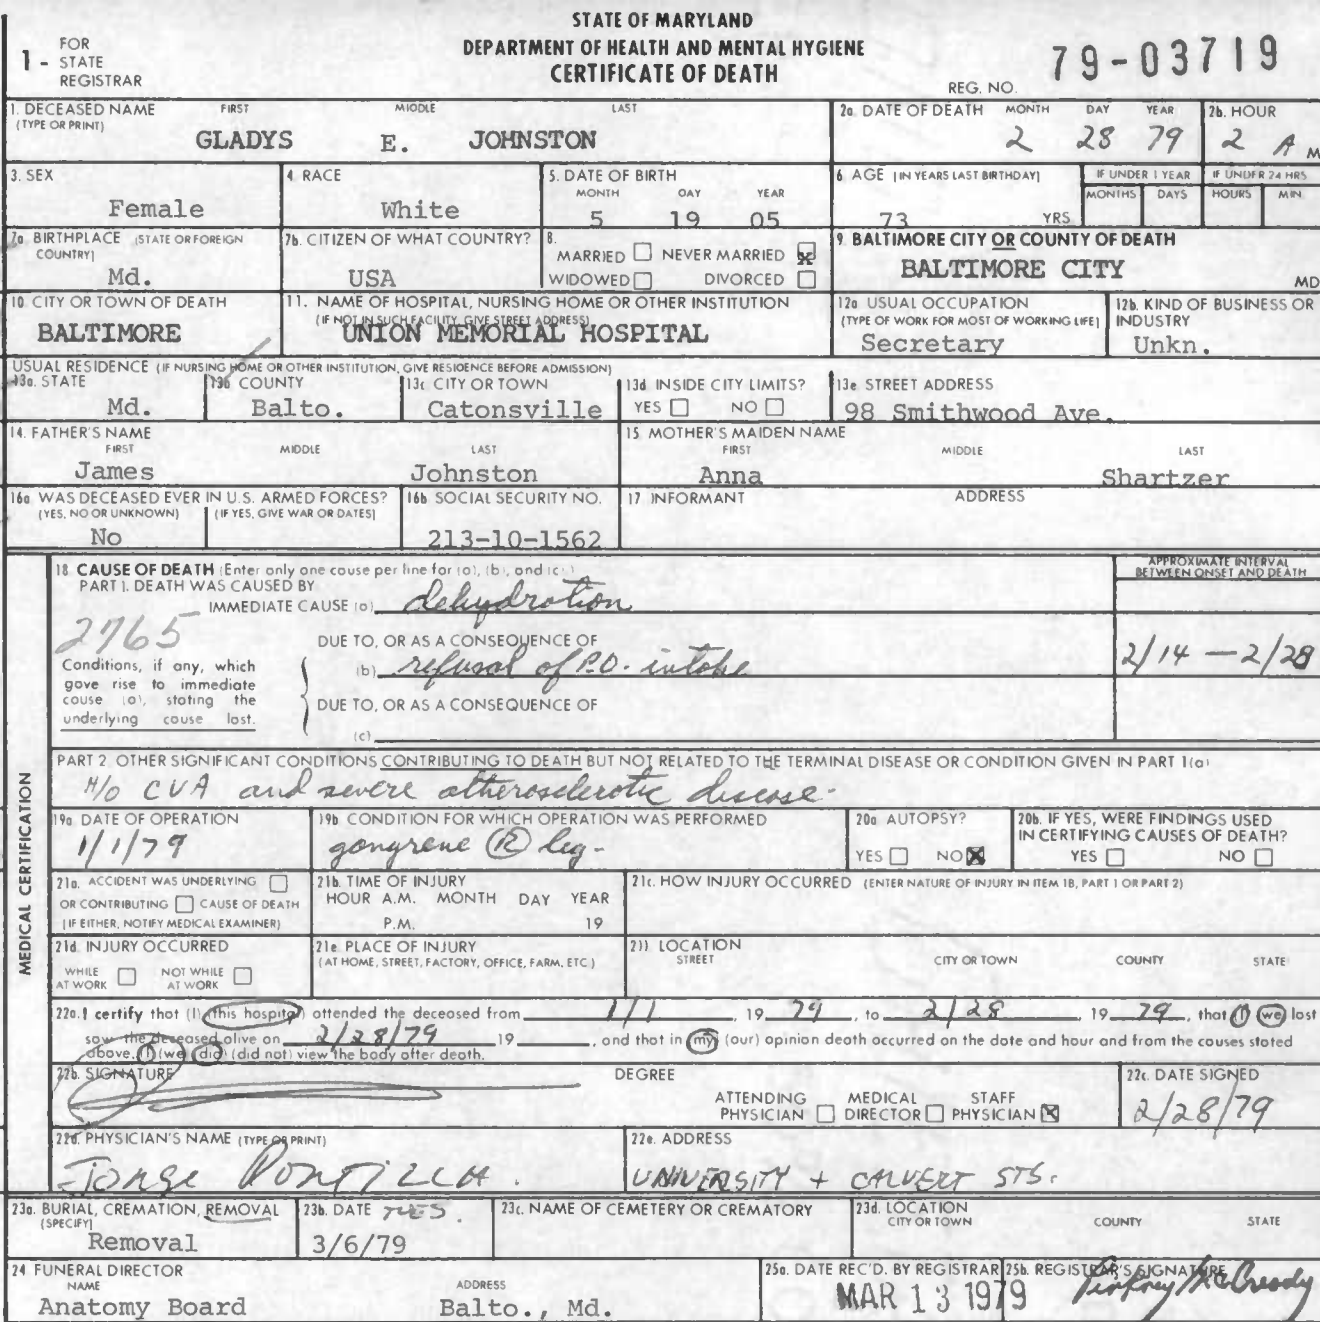 STATE OF MARYLAND
DEPARTMENT OF HEALTH AND MENTAL HYGIENE
CERTIFICATE OF DEATH
1 - FOR STATE REGISTRAR
REG. NO. 79-03719
1. DECEASED NAME (TYPE OR PRINT) FIRST MIDDLE LAST
GLADYS E. JOHNSTON
2a. DATE OF DEATH MONTH DAY YEAR
2 28 79
2b. HOUR
2 A M
3. SEX
Female
4. RACE
White
5. DATE OF BIRTH MONTH DAY YEAR
5 19 05
6. AGE (IN YEARS LAST BIRTHDAY)
73 YRS.
IF UNDER 1 YEAR MONTHS DAYS
IF UNDER 24 HRS HOURS MIN.
7a. BIRTHPLACE (STATE OR FOREIGN COUNTRY)
Md.
7b. CITIZEN OF WHAT COUNTRY?
USA
8. MARRIED ☐ NEVER MARRIED ☒
WIDOWED ☐ DIVORCED ☐
9. BALTIMORE CITY OR COUNTY OF DEATH
BALTIMORE CITY MD
10. CITY OR TOWN OF DEATH
BALTIMORE
11. NAME OF HOSPITAL, NURSING HOME OR OTHER INSTITUTION
(IF NOT IN SUCH FACILITY, GIVE STREET ADDRESS)
UNION MEMORIAL HOSPITAL
12a. USUAL OCCUPATION
(TYPE OF WORK FOR MOST OF WORKING LIFE)
Secretary
12b. KIND OF BUSINESS OR INDUSTRY
Unkn.
USUAL RESIDENCE (IF NURSING HOME OR OTHER INSTITUTION, GIVE RESIDENCE BEFORE ADMISSION)
13a. STATE
Md.
13b COUNTY
Balto.
13c CITY OR TOWN
Catonsville
13d INSIDE CITY LIMITS?
YES ☐ NO ☐
13e STREET ADDRESS
98 Smithwood Ave.
14. FATHER'S NAME FIRST MIDDLE LAST
James Johnston
15 MOTHER'S MAIDEN NAME FIRST MIDDLE LAST
Anna Shartzer
16a WAS DECEASED EVER IN U.S. ARMED FORCES?
(YES, NO OR UNKNOWN) (IF YES, GIVE WAR OR DATES)
No
16b SOCIAL SECURITY NO.
213-10-1562
17 INFORMANT ADDRESS
MEDICAL CERTIFICATION
18 CAUSE OF DEATH (Enter only one cause per line for (a), (b), and (c).)
PART I. DEATH WAS CAUSED BY
APPROXIMATE INTERVAL BETWEEN ONSET AND DEATH
IMMEDIATE CAUSE (a) dehydration
2765
DUE TO, OR AS A CONSEQUENCE OF
(b) refusal of P.O. intake 2/14 - 2/28
Conditions, if any, which gave rise to immediate cause (a), stating the underlying cause last.
DUE TO, OR AS A CONSEQUENCE OF
(c)
PART 2. OTHER SIGNIFICANT CONDITIONS CONTRIBUTING TO DEATH BUT NOT RELATED TO THE TERMINAL DISEASE OR CONDITION GIVEN IN PART 1(a)
H/o CVA and severe atherosclerotic disease.
19a DATE OF OPERATION
1/1/79
19b CONDITION FOR WHICH OPERATION WAS PERFORMED
gangrene (R) leg.
20a AUTOPSY?
YES ☐ NO ☒
20b. IF YES, WERE FINDINGS USED IN CERTIFYING CAUSES OF DEATH?
YES ☐ NO ☐
21a. ACCIDENT WAS UNDERLYING ☐
OR CONTRIBUTING ☐ CAUSE OF DEATH
(IF EITHER, NOTIFY MEDICAL EXAMINER)
21b. TIME OF INJURY
HOUR A.M. MONTH DAY YEAR
P.M. 19
21c. HOW INJURY OCCURRED (ENTER NATURE OF INJURY IN ITEM 18, PART 1 OR PART 2)
21d. INJURY OCCURRED
WHILE AT WORK ☐ NOT WHILE AT WORK ☐
21e PLACE OF INJURY
(AT HOME, STREET, FACTORY, OFFICE, FARM, ETC.)
21f LOCATION STREET CITY OR TOWN COUNTY STATE
22a. I certify that (I) (this hospital) attended the deceased from 1/1, 19 79, to 2/28, 19 79, that (I) (we) last
saw the deceased alive on 2/28/79 19, and that in (my) (our) opinion death occurred on the date and hour and from the causes stated
above. (I) (we) (did) (did not) view the body after death.
22b. SIGNATURE DEGREE
ATTENDING PHYSICIAN ☐ MEDICAL DIRECTOR ☐ STAFF PHYSICIAN ☒
22c. DATE SIGNED
2/28/79
22d. PHYSICIAN'S NAME (TYPE OR PRINT)
Jorge
22e. ADDRESS
UNIVERSITY + CALVERT STS.
23a. BURIAL, CREMATION, REMOVAL (SPECIFY)
Removal
23b. DATE TUES.
3/6/79
23c. NAME OF CEMETERY OR CREMATORY
23d. LOCATION CITY OR TOWN COUNTY STATE
24 FUNERAL DIRECTOR NAME ADDRESS
Anatomy Board Balto., Md.
25a. DATE REC'D. BY REGISTRAR
MAR 13 1979
25b. REGISTRAR'S SIGNATURE